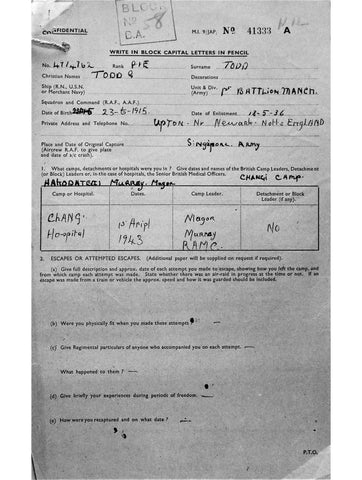 BLOCK
No 58
D.A.
CONFIDENTIAL
M.I. 9/JAP. No 41333 A
WRITE IN BLOCK CAPITAL LETTERS IN PENCIL
No. Rank PTE Surname TODD
Christian Names TODD Decorations
Ship (R.N., U.S.N. or Merchant Navy) Unit & Div. (Army) 1st BATTLION MANCH.
Squadron and Command (R.A.F., A.A.F.)
Date of Birth 23-5-1915. Date of Enlistment. 18-5-36
Private Address and Telephone No. UPTON. Nr Newark. Notts ENGLAND
Place and Date of Original Capture Singapore Army
(Aircrew R.A.F. to give place
and date of a/c crash).
1. What camps, detachments or hospitals were you in? Give dates and names of the British Camp Leaders, Detachment
(or Block) Leaders or, in case of hospitals, the Senior British Medical Officers. CHANGI CAMP.
HAKODATE Murray. Magor
Camp or Hospital. Dates. Camp Leader. Detachment or Block Leader (if any).
CHANG Hospital 10 Aripl 1943 Magor Murray RAMC. NO
2. ESCAPES OR ATTEMPTED ESCAPES. (Additional paper will be supplied on request if required).
(a) Give full description and approx. date of each attempt you made to escape, showing how you left the camp, and
from which camp each attempt was made. State whether there was an air-raid in progress at the time or not. If an
escape was made from a train or vehicle the approx. speed and how it was guarded should be included.
(b) Were you physically fit when you made these attempts?
(c) Give Regimental particulars of anyone who accompanied you on each attempt.
What happened to them?
(d) Give briefly your experiences during periods of freedom.
(e) How were you recaptured and on what date?
P.T.O.